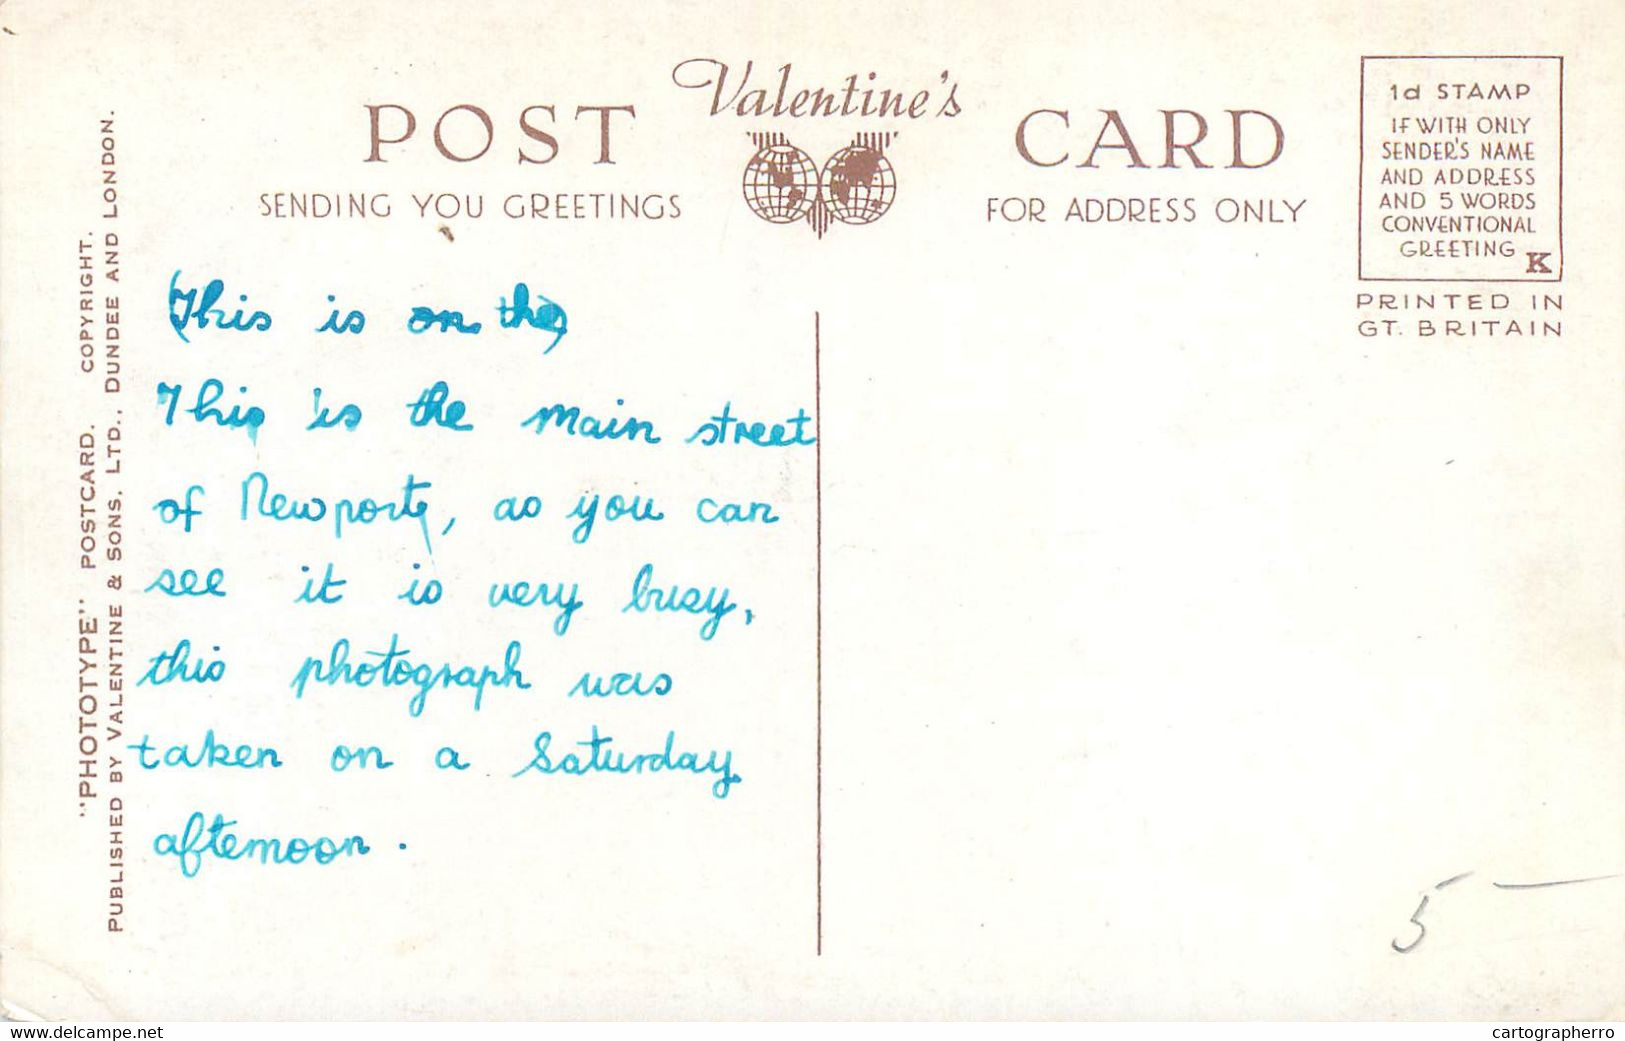 Valentine's
POST CARD
SENDING YOU GREETINGS
FOR ADDRESS ONLY
1d STAMP
IF WITH ONLY
SENDER'S NAME
AND ADDRESS
AND 5 WORDS
CONVENTIONAL
GREETING K
PRINTED IN
GT. BRITAIN
"PHOTOTYPE" POSTCARD. COPYRIGHT.
PUBLISHED BY VALENTINE & SONS, LTD., DUNDEE AND LONDON.
(This is on the)
This is the main street
of Newport, as you can
see it is very busy,
this photograph was
taken on a Saturday
afternoon.
5 —
www.delcampe.net
cartographerro